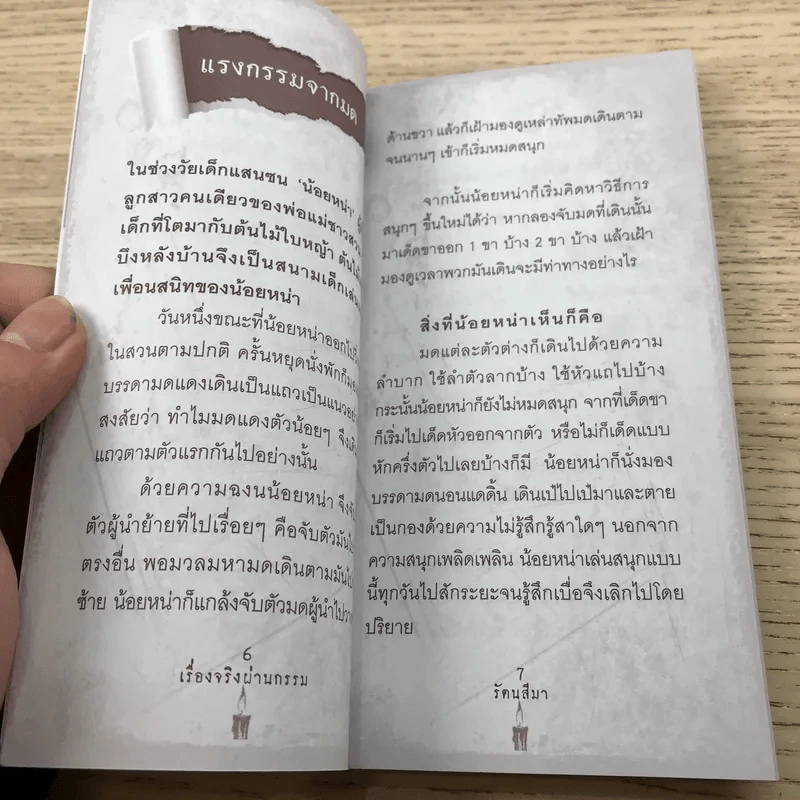 แรงกรรมจากมด
ในช่วงวัยเด็กแสนซน ‘น้อยหน่า’
ลูกสาวคนเดียวของพ่อแม่ชาวสวน
เด็กที่โตมากับต้นไม้ใบหญ้า ต้นไม้
บึงหลังบ้านจึงเป็นสนามเด็กเล่น
เพื่อนสนิทของน้อยหน่า
วันหนึ่งขณะที่น้อยหน่าออกไป
ในสวนตามปกติ ครั้นหยุดนั่งพัก
บรรดามดแดงเดินเป็นแถวเป็นแนว
สงสัยว่า ทำไมมดแดงตัวน้อยๆ จึง
แถวตามตัวแรกกันไปอย่างนั้น
ด้วยความฉงนน้อยหน่า จึง
ตัวผู้นำย้ายที่ไปเรื่อยๆ คือจับตัวมัน
ตรงอื่น พอมวลมหามดเดินตามมัน
ซ้าย น้อยหน่าก็แกล้งจับตัวมดผู้นำ
6
เรื่องจริงผ่านกรรม
ด้านขวา แล้วก็เฝ้ามองดูเหล่าทัพมดเดินตาม
จนนานๆ เข้าก็เริ่มหมดสนุก
จากนั้นน้อยหน่าก็เริ่มคิดหาวิธีการ
สนุกๆ ขึ้นใหม่ได้ว่า หากลองจับมดที่เดินนั้น
มาเด็ดขาออก 1 ขา บ้าง 2 ขา บ้าง แล้วเฝ้า
มองดูเวลาพวกมันเดินจะมีท่าทางอย่างไร
สิ่งที่น้อยหน่าเห็นก็คือ
มดแต่ละตัวต่างก็เดินไปด้วยความ
ลำบาก ใช้ลำตัวลากบ้าง ใช้หัวแถไปบ้าง
กระนั้นน้อยหน่าก็ยังไม่หมดสนุก จากที่เด็ดขา
ก็เริ่มไปเด็ดหัวออกจากตัว หรือไม่ก็เด็ดแบบ
หักครึ่งตัวไปเลยบ้างก็มี น้อยหน่าก็นั่งมอง
บรรดามดนอนแดดิ้น เดินเป๋ไปเป๋มาและตาย
เป็นกองด้วยความไม่รู้สึกรู้สาใดๆ นอกจาก
ความสนุกเพลิดเพลิน น้อยหน่าเล่นสนุกแบบ
นี้ทุกวันไปสักระยะจนรู้สึกเบื่อจึงเลิกไปโดย
ปริยาย
7
รัตนสีมา